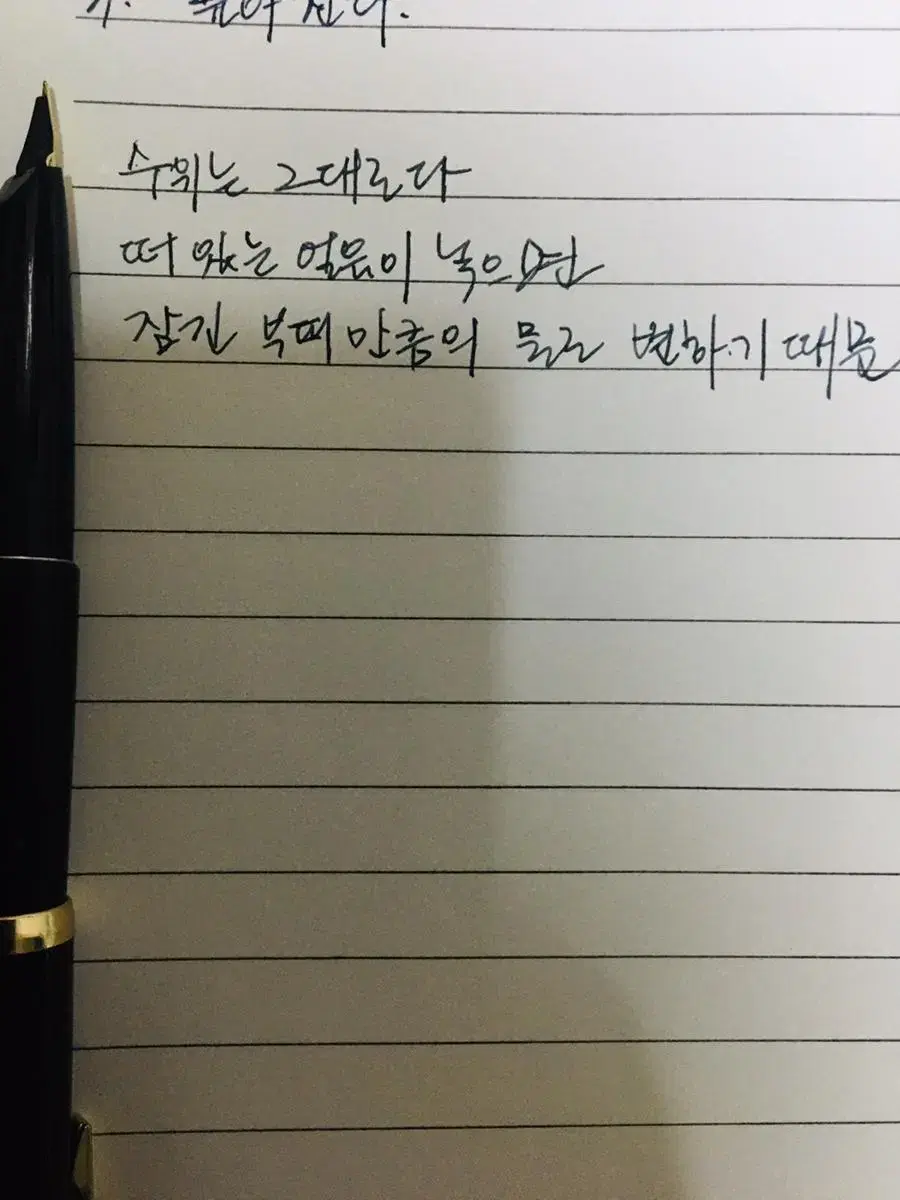 수위는 그대로다
떠 있는 얼음이 녹으면
잠긴 부피만큼의 물로 변하기 때문